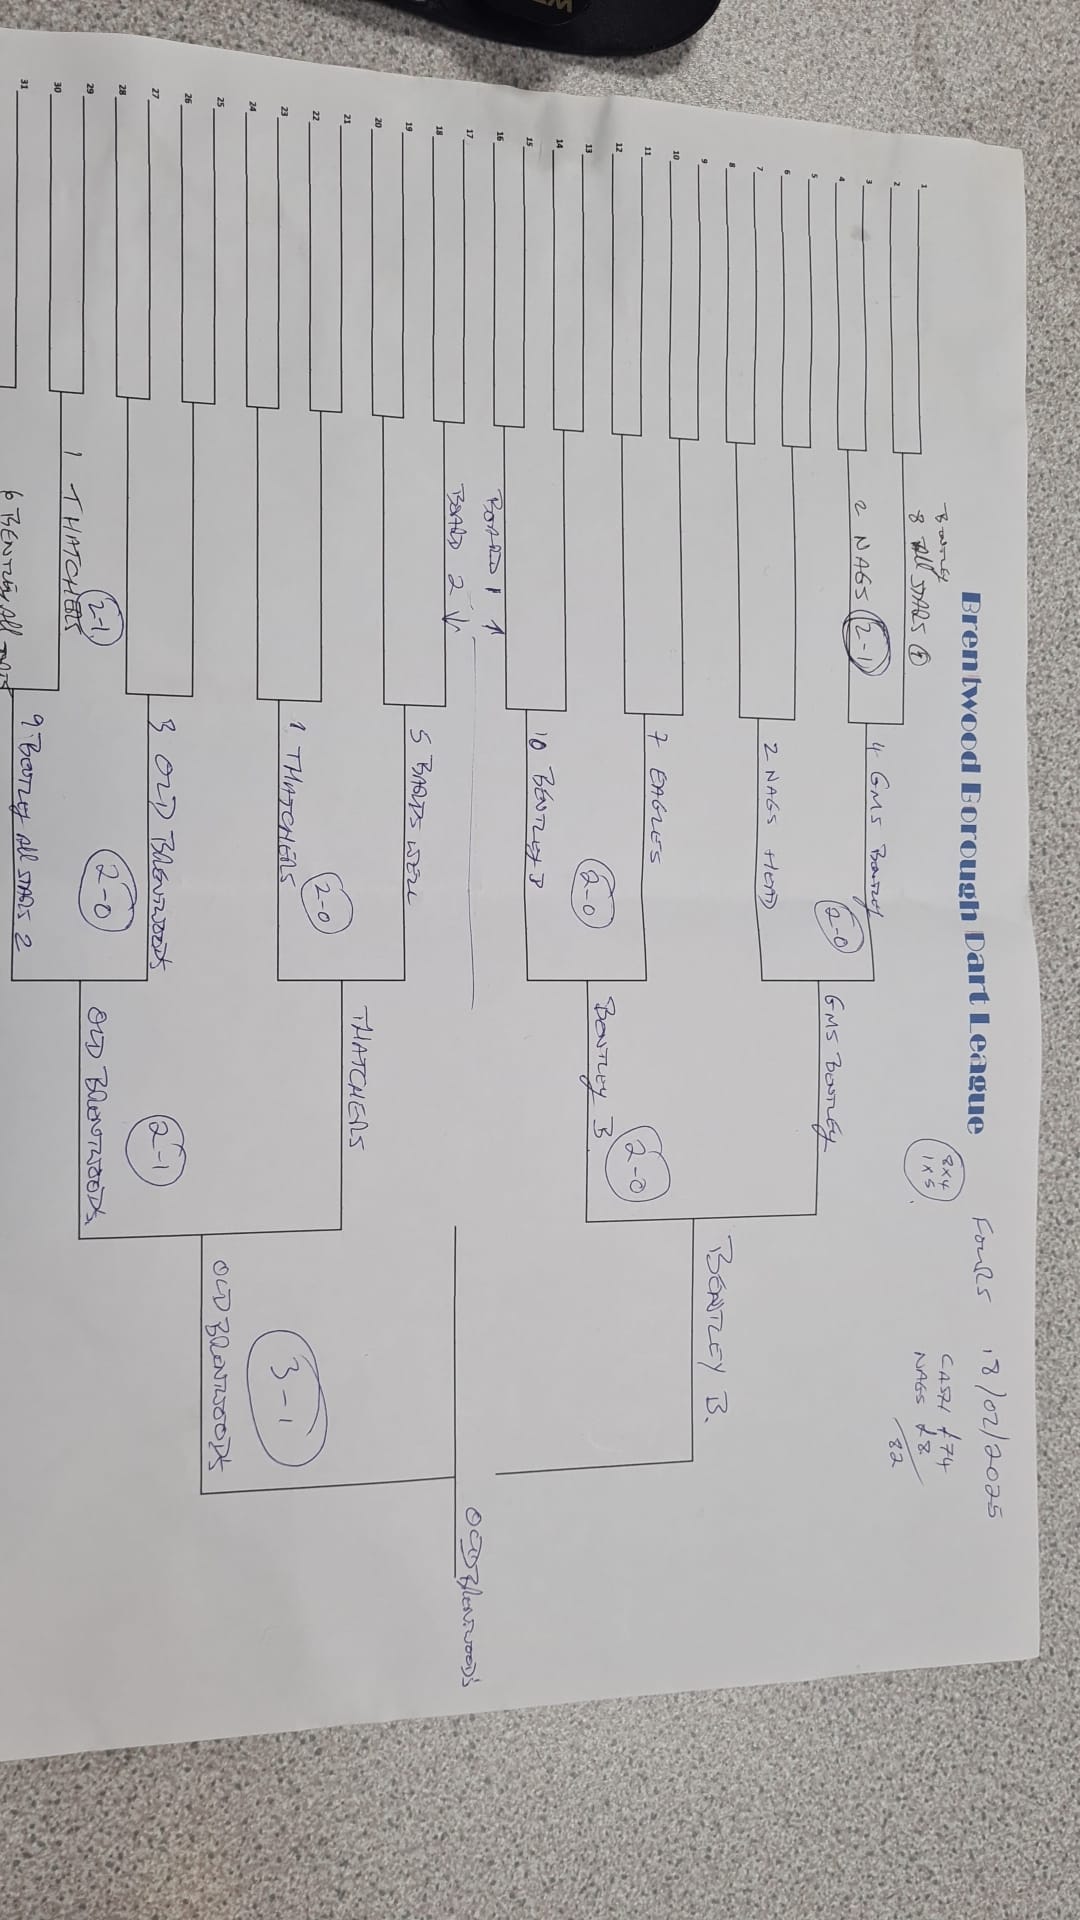 Brentwood Borough Dart League
Fours 18/02/2025
8x4
1x5
CASH £74
NAGS £8
82
1
2
3
4
5
6
7
8
9
10
11
12
13
14
15
16
17
18
19
20
21
22
23
24
25
26
27
28
29
30
31
Bentley
8 All STARS
2 NAGS 2-1
4 GMS Bentley
2-0
2 NAGS HEAD
GMS BENTLEY
7 EAGLES
2-0
10 BENTLEY B
BENTLEY B
2-0
BENTLEY B.
BOARD 1 ↑
BOARD 2 ↓
5 BARDS WELL
2-0
1. THATCHERS
THATCHERS
3 OLD BRENTWOODS
2-0
2-1
1 THATCHERS
6 BENTLEY All
9. BENTLEY All STARS 2
OLD BRENTWOODS
2-1
OLD BRENTWOODS
3-1
OLD BRENTWOODS